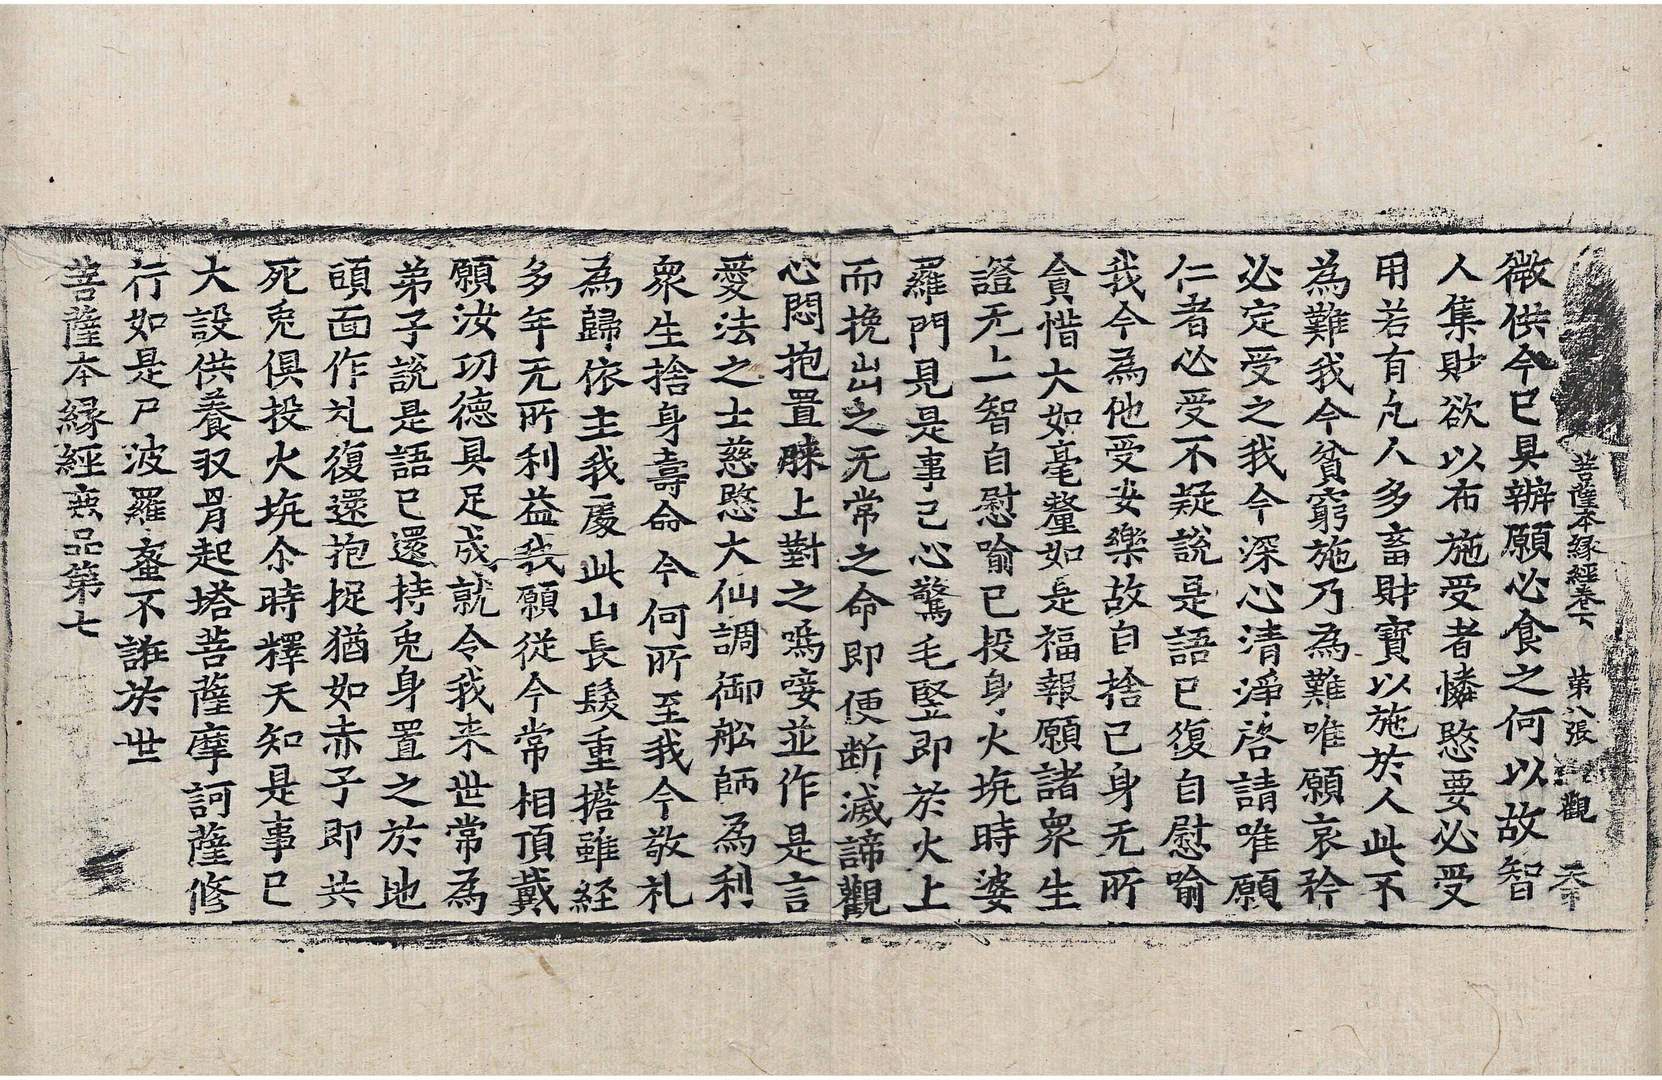 菩薩本縁經卷下 第八張 觀
微供今已具辦願必食之何以故智
人集財欲以布施受者憐愍要必受
用若有凡人多畜財寶以施於人此不
為難我今貧窮施乃為難唯願哀矜
必定受之我今深心清淨啓請唯願
仁者必受不疑說是語已復自慰喻
我今為他受安樂故自捨己身无所
貪惜大如毫釐如是福報願諸衆生
證无上智自慰喻已投身火坑時婆
羅門見是事已心驚毛竪即於火上
而挽出之无常之命即便断滅諦觀
心悶抱置膝上對之嗚唼並作是言
愛法之士慈愍大仙調御舩師為利
衆生捨身壽命今何所至我今敬礼
為歸依主我處此山長髮重擔雖経
多年无所利益我願從今常相頂戴
願汝功德具足成就令我来世常為
弟子說是語已還持兎身置之於地
頭面作礼復還抱捉猶如赤子即共
死兎俱投火坑尒時釋天知是事已
大設供養収骨起塔菩薩摩訶薩修
行如是尸波羅蜜不誑於世
菩薩本縁經兎品第七